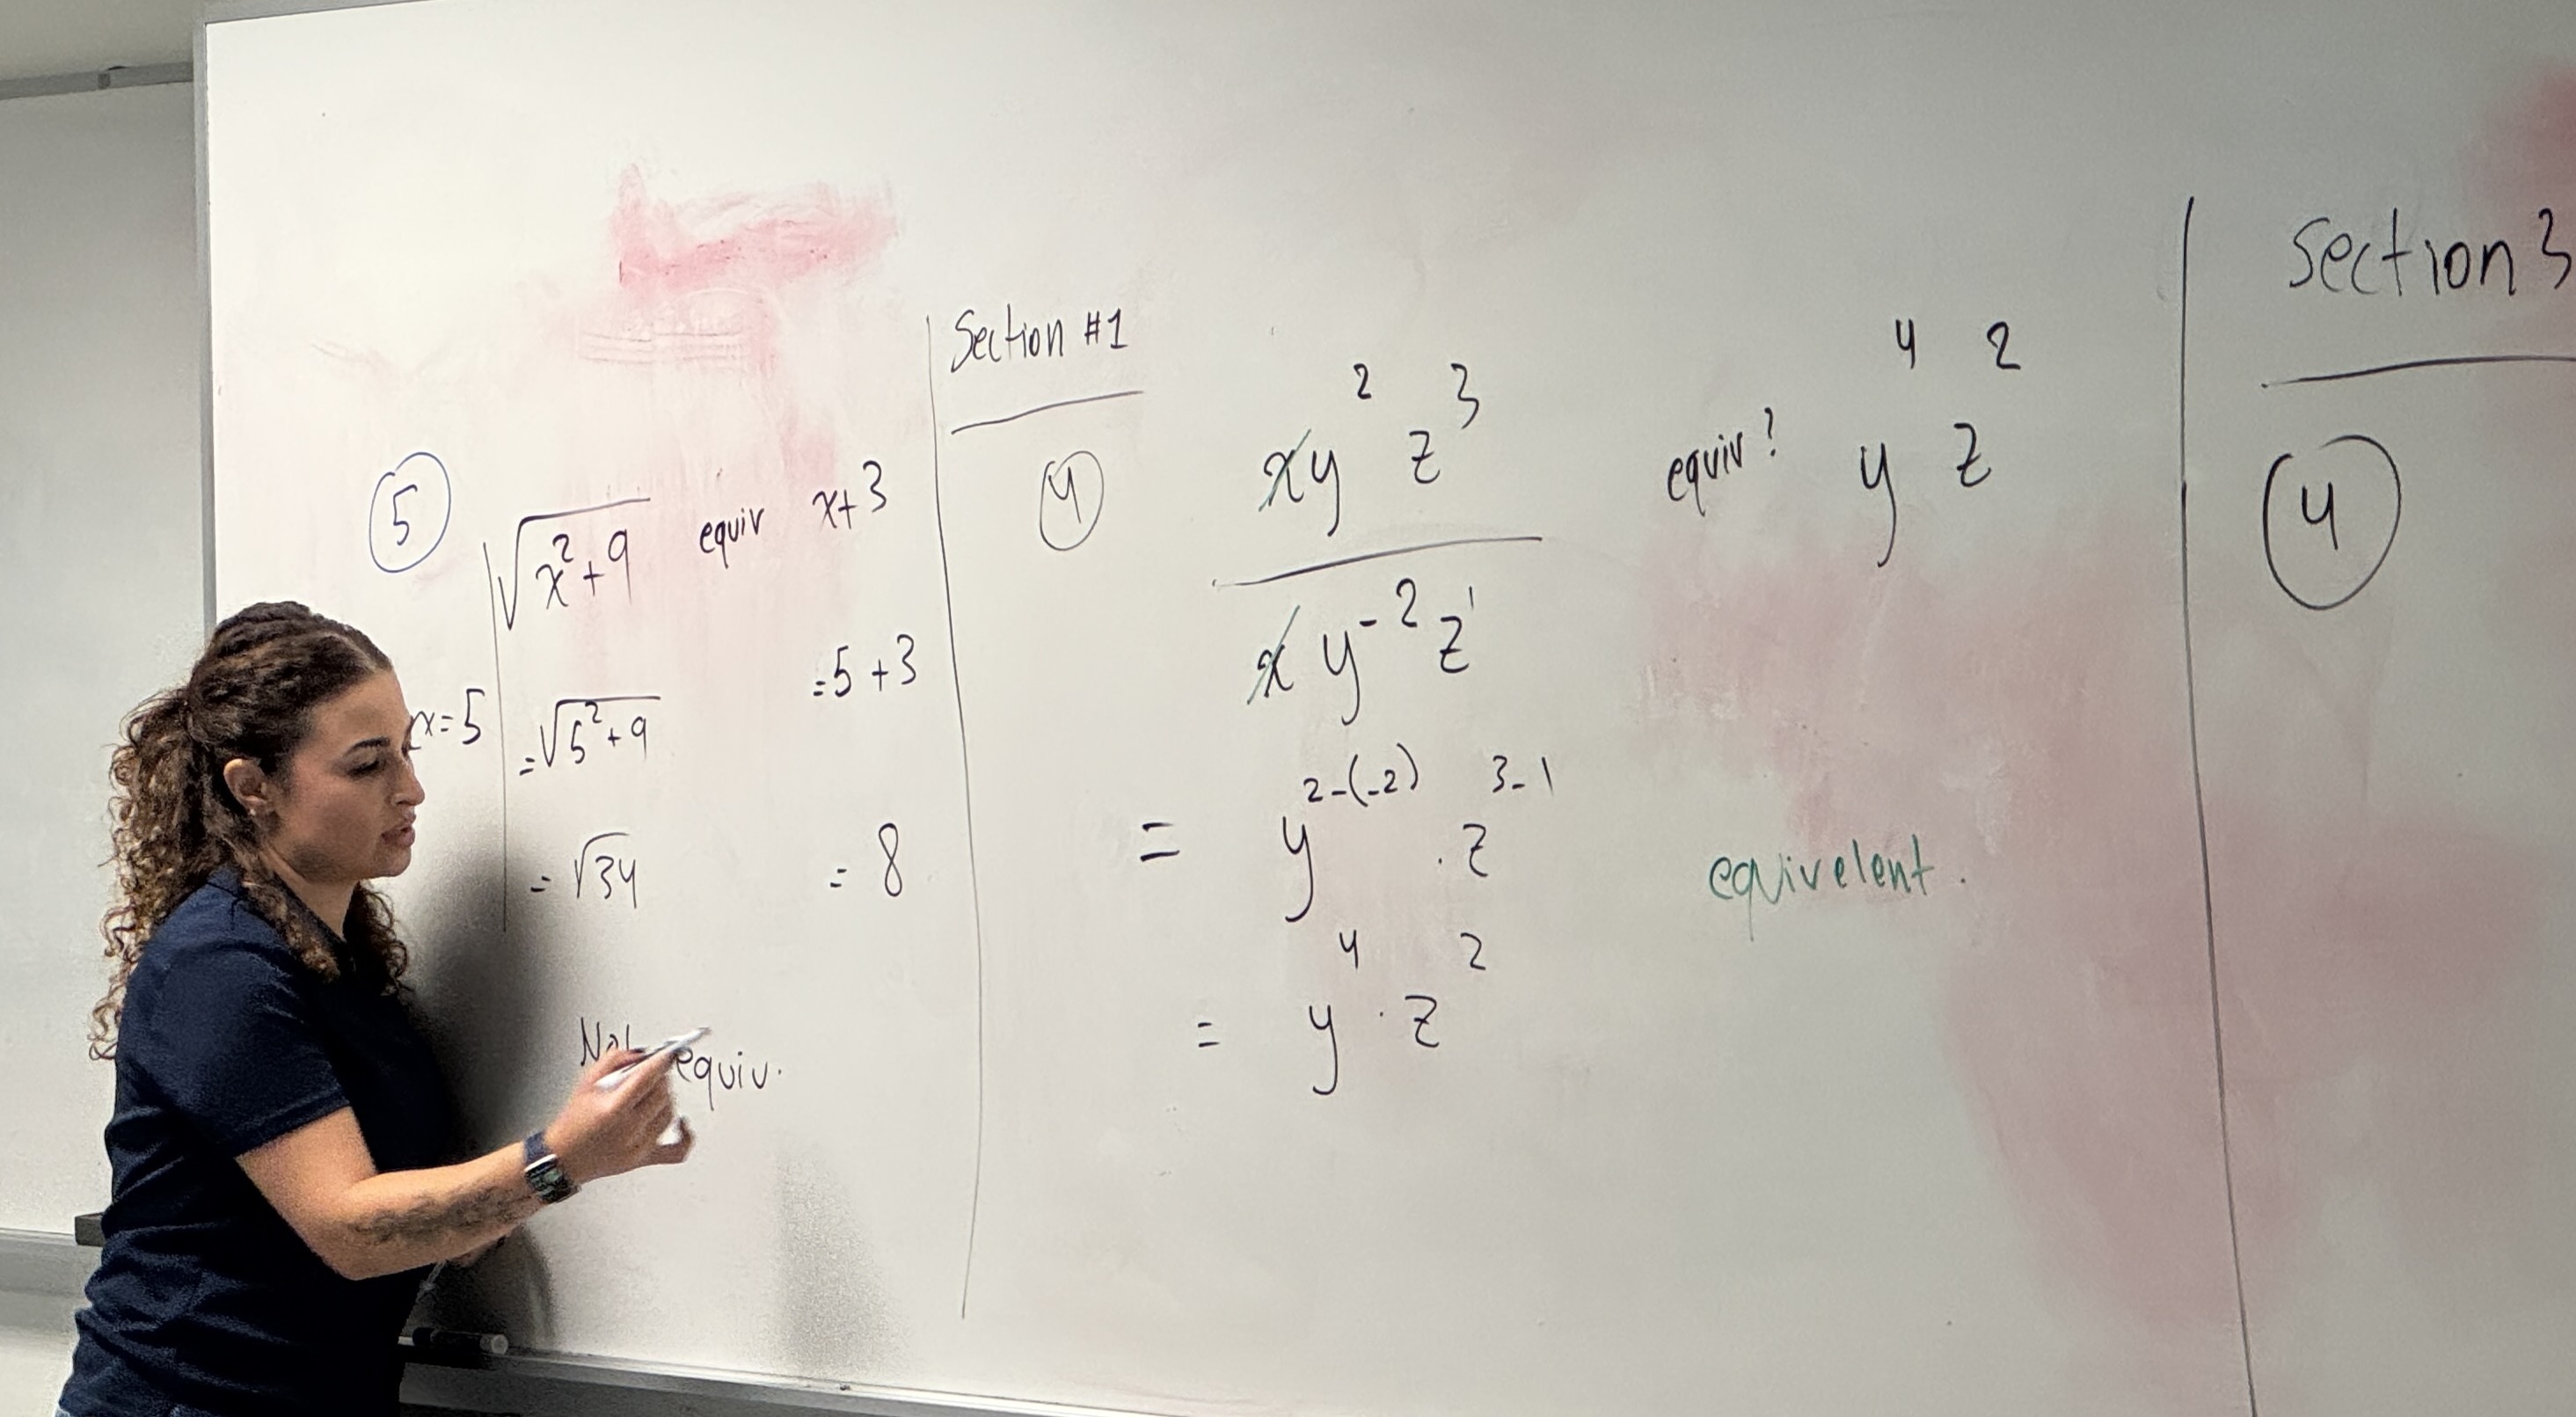 5
√x²+9 equiv x+3
x=5
=√5²+9 =5+3
=√34 =8
Not equiv.
Section #1
4
xy²z³
equiv? y⁴z²
xy⁻²z¹
= y²⁻⁽⁻²⁾ · z³⁻¹
equivelent.
= y⁴ · z²
Section 3
4